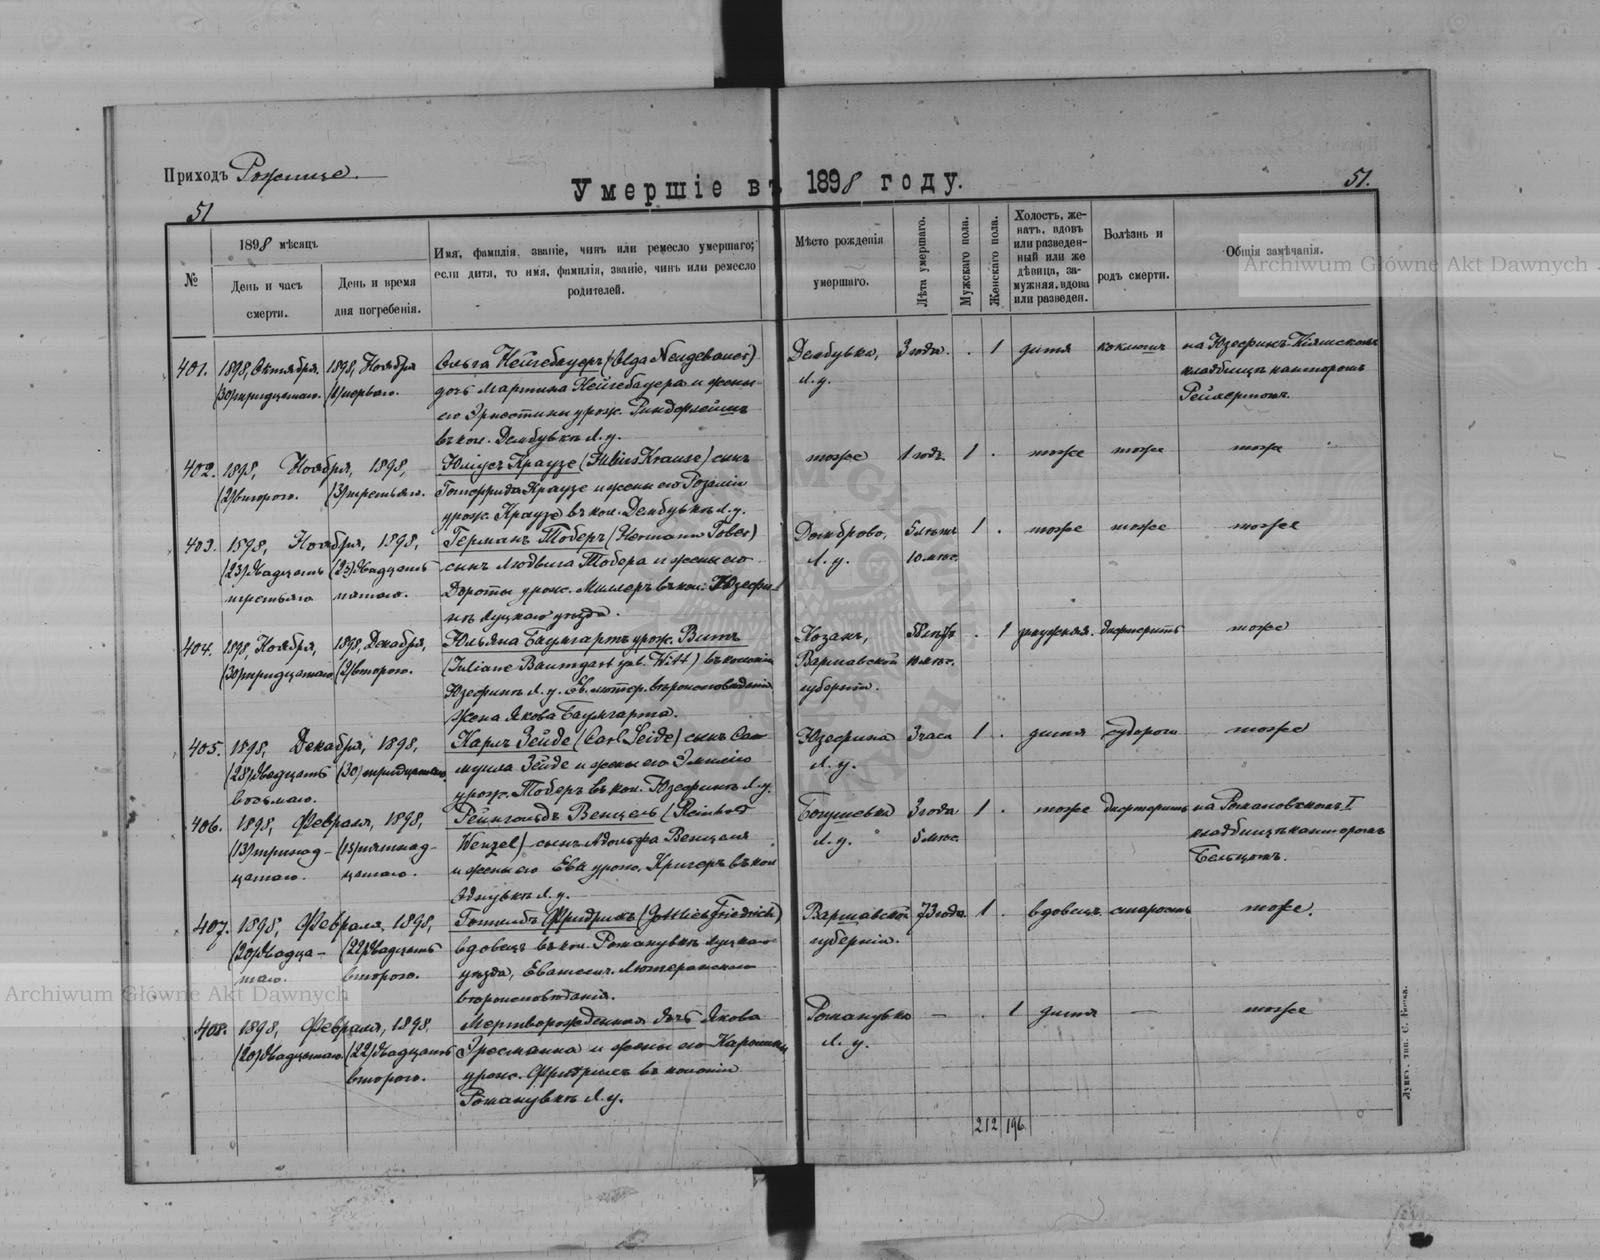 Приходъ Рожище.
Умершіе въ 1898 году.
51
51.
№
1898 мѣсяцъ
День и часъ смерти.
День и время дня погребенія.
Имя, фамилія, званіе, чинъ или ремесло умершаго;
если дитя, то имя, фамилія, званіе, чинъ или ремесло
родителей.
Мѣсто рожденія
умершаго.
Лѣта умершаго.
Мужскаго пола.
Женскаго пола.
Холостъ, же-
натъ, вдовъ
или разведен-
ный или же
дѣвица, за-
мужняя, вдова
или разведен.
Болѣзнь и
родъ смерти.
Общія замѣчанія.
Archiwum Główne Akt Dawnych
401. 1898, Октября 1898, Ноября Ольга Нейгебауеръ (Olga Neugebauer) Дембувка, 3 года . 1 дитя коклюшъ на Юзефинъ
(30) тридцатаго. (1) перваго. дочь Мартина Нейгебауера и жены Л. у. кладбищѣ канторомъ
его Эрнестины урож. Рейхертомъ.
въ кол. Дембувкѣ Л. у.
402. 1898, Ноября, 1898, Юліусъ Краузе (Julius Krause) сынъ тоже 1 годъ 1 . тоже тоже тоже
(2) второго. (3) третьяго. Готфрида Краузе и жены его Розаліи
урож. Краузе въ кол. Дембувкѣ Л. у.
403. 1898, Ноября, 1898, Германъ Тоберъ (Hermann Tober) Домброво, 5 лѣтъ 1 . тоже тоже тоже
(23) двадцать (25) двадцать сынъ Людвига Тобера и жены его Л. у. 10 мѣс.
третьяго пятаго. Дороты урож. Миллеръ въ кол. Юзефи-
нѣ Луцкаго уѣзда.
404. 1898, Ноября, 1898, Декабря, Юльяна Баумгартъ урож. Витъ Козакъ, . 1 замужняя. дифтеритъ тоже
(30) тридцатаго (2) второго. (Juliane Baumgart geb. Witt) въ колоніи Варшавской 10 мѣс.
Юзефинѣ Л. у. Ев. лютер. вѣроисповѣданія губерніи.
жена Якова Баумгарта.
405. 1898, Декабря, 1898, Карлъ Зейде (Carl Seide) сынъ Са- Юзефина 3 часа 1 . дитя судороги тоже
(28) двадцать (30) тридцатаго. муила Зейде и жены его Эмиліи Л. у.
восьмаго. урож. Тоберъ въ кол. Юзефинѣ Л. у.
406. 1898, Февраля, 1898, Рейнгольдъ Венцель (Reinhold Богушевка 3 года 1 . тоже дифтеритъ на Рожановскомъ I
(13) тринад- (15) пятнад- Wenzel) сынъ Адольфа Венцеля Л. у. 5 мѣс. кладбищѣ канторомъ
цатаго. цатаго. и жены его Евы урож. Кригеръ въ кол. Бельцомъ.
Л. у.
407. 1898, Февраля, 1898, Готлибъ Фридрихъ (Gottlieb Friedrich) Варшавской 73 года 1 . вдовецъ старость тоже.
(20) двадца- (22) двадцать вдовецъ въ кол. Романувкѣ Луцкаго губерніи.
таго. второго. уѣзда, Евангелич. Лютеранскаго
вѣроисповѣданія.
408. 1898, Февраля, 1898, Мертворожденная дочь Якова Романувка — . 1 дитя — тоже
(20) двадцатаго (22) двадцать и жены его Каролины Л. у.
второго. урож. Фридрихъ въ колоніи
Романувкѣ Л. у.
212 196
Archiwum Główne Akt Dawnych